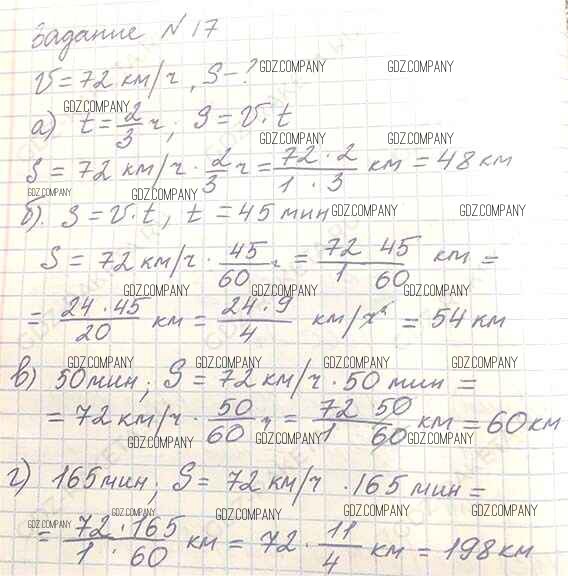 Задание N 17
V = 72 км/ч, S - ? GDZ.COMPANY GDZ.COMPANY
GDZ.COMPANY
а) t = 2/3 ч; S = V · t
GDZ.COMPANY GDZ.COMPANY
S = 72 км/ч · 2/3 ч = 72 · 2 / 1 · 3 км = 48 км
GDZ.COMPANY GDZ.COMPANY
б). S = V · t, t = 45 мин GDZ.COMPANY GDZ.COMPANY
S = 72 км/ч · 45/60 ч = 72 45 / 1 60 км =
GDZ.COMPANY GDZ.COMPANY GDZ.COMPANY
= 24 · 45 / 20 км = 24 · 9 / 4 км/ч = 54 км
GDZ.COMPANY GDZ.COMPANY GDZ.COMPANY GDZ.COMPANY
в) 50 мин; S = 72 км/ч · 50 мин =
= 72 км/ч · 50/60 ч = 72 50 / 1 60 км = 60 км
GDZ.COMPANY GDZ.COMPANY GDZ.COMPANY
г) 165 мин; S = 72 км/ч · 165 мин =
GDZ.COMPANY GDZ.COMPANY GDZ.COMPANY GDZ.COMPANY GDZ.COMPANY
= 72 · 165 / 1 · 60 км = 72 · 11/4 км = 198 км